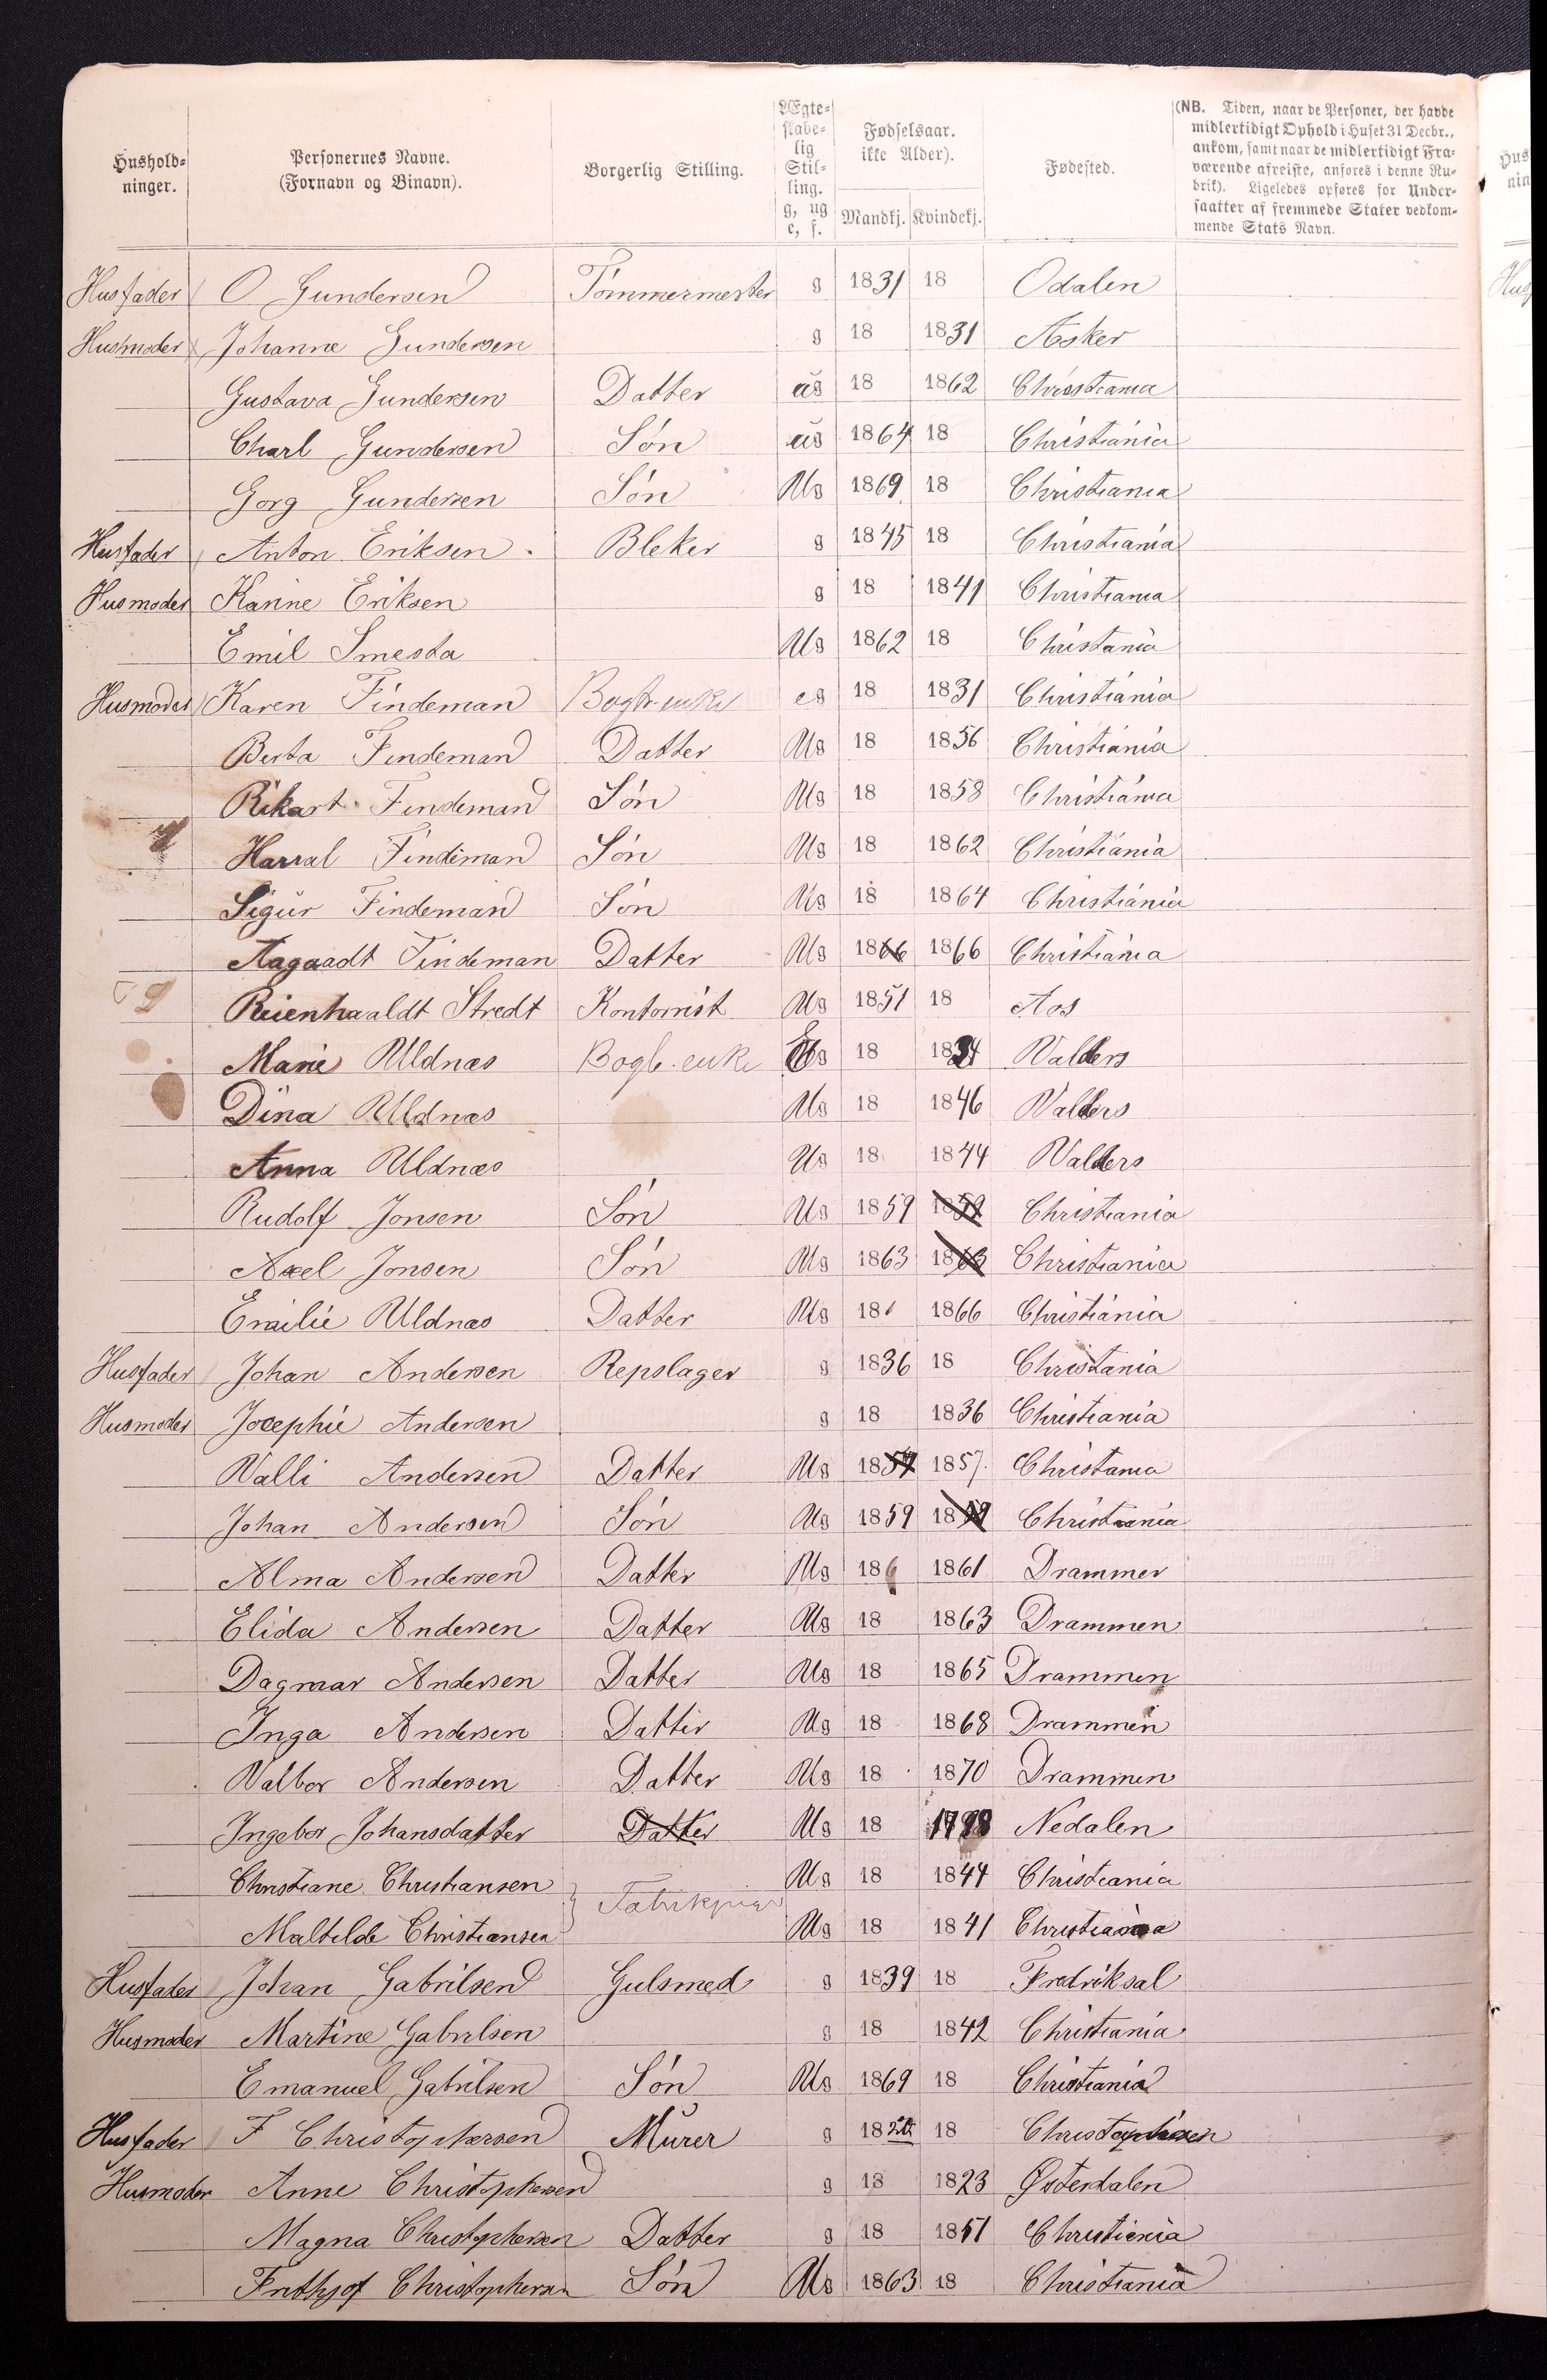 Hushold-ninger. Personernes Navne. (Fornavn og Binavn). Borgerlig Stilling. Ægte-skabe-lig Stil-ling. g, ug e, f. Fødselsaar. ikke Alder). Mandkj. Kvindekj. Fødested. (NB. Tiden, naar de Personer, der havde midlertidigt Ophold i Huset 31 Decbr., ankom, samt naar de midlertidigt Fra-værende afreiste, anføres i denne Ru-brik). Ligeledes opføres for Under-saatter af fremmede Stater vedkom-mende Stats Navn.
Husfader O Gundersen Tømmermester g 1831 18 Odalen
Husmoder Johanne Gundersen g 18 1831 Asker
Gustava Gundersen Datter ug 18 1862 Christiania
Charl Gundersen Søn ug 1864 18 Christiania
Gorg Gundersen Søn Ug 1869 18 Christiania
Husfader Anton Eriksen Bleker g 1845 18 Christiania
Husmoder Karine Eriksen g 18 1841 Christiania
Emil Smesta Ug 1862 18 Christania
Husmoder Karen Findeman Bogtr. enke eg 18 1831 Christiania
Berta Findeman Datter Ug 18 1856 Christiania
Rikart Findeman Søn Ug 18 1858 Christiania
Harral Findeman Søn Ug 18 1862 Christiania
Sigur Findeman Søn Ug 18 1864 Christiania
Aagaadt Findeman Datter Ug 1866 1866 Christiania
Reienhaaldt Stredt Kontorrist Ug 1851 18 Aos
Marie Uldnæs Bogb. enke 18 Valders
Dina Uldnæs Ug 18 1846 Valders
Anna Uldnæs Ug 18 1844 Valders
Rudolf Jonsen Søn Ug 1859 1859 Christiania
Axel Jonsen Søn Ug 1863 1863 Christiania
Emilie Uldnæs Datter Ug 18 1866 Christiania
Husfader Johan Andersen Repslager g 1836 18 Christania
Husmoder Josephie Andersen g 18 1836 Christiania
Valli Andersen Datter Ug 1857 1857. Christania
Johan Andersen Søn Ug 1859 1859 Christiania
Alma Andersen Datter Ug 186 1861 Drammer
Elida Andersen Datter Ug 18 1863 Drammen
Dagmar Andersen Datter Ug 18 1865 Drammen
Inga Andersen Datter Ug 18 1868 Drammen
Valbor Andersen Datter Ug 18 1870 Drammen
Ingebor Johansdatter Datter Ug 18 1798 Nedalen
Christiane Christiansen Ug 18 1844 Christiania
Maltilde Christiansen Fabrikpiger Ug 18 1841 Christiania
Husfader Johan Gabrilsen Gulsmed g 1839 18 Fredriksal
Husmoder Martine Gabrilsen g 18 1842 Christiania
Emanuel Gabrilsen Søn Ug 1869 18 Christiania
Husfader F Christophersen Murer g 18 18
Husmoder Anne Christophersen g 18 1823 Østerdalen
Magna Christophersen Datter g 18 1851 Christienia
Frithjof Christophersen Søn Ug 1863 18 Christiania